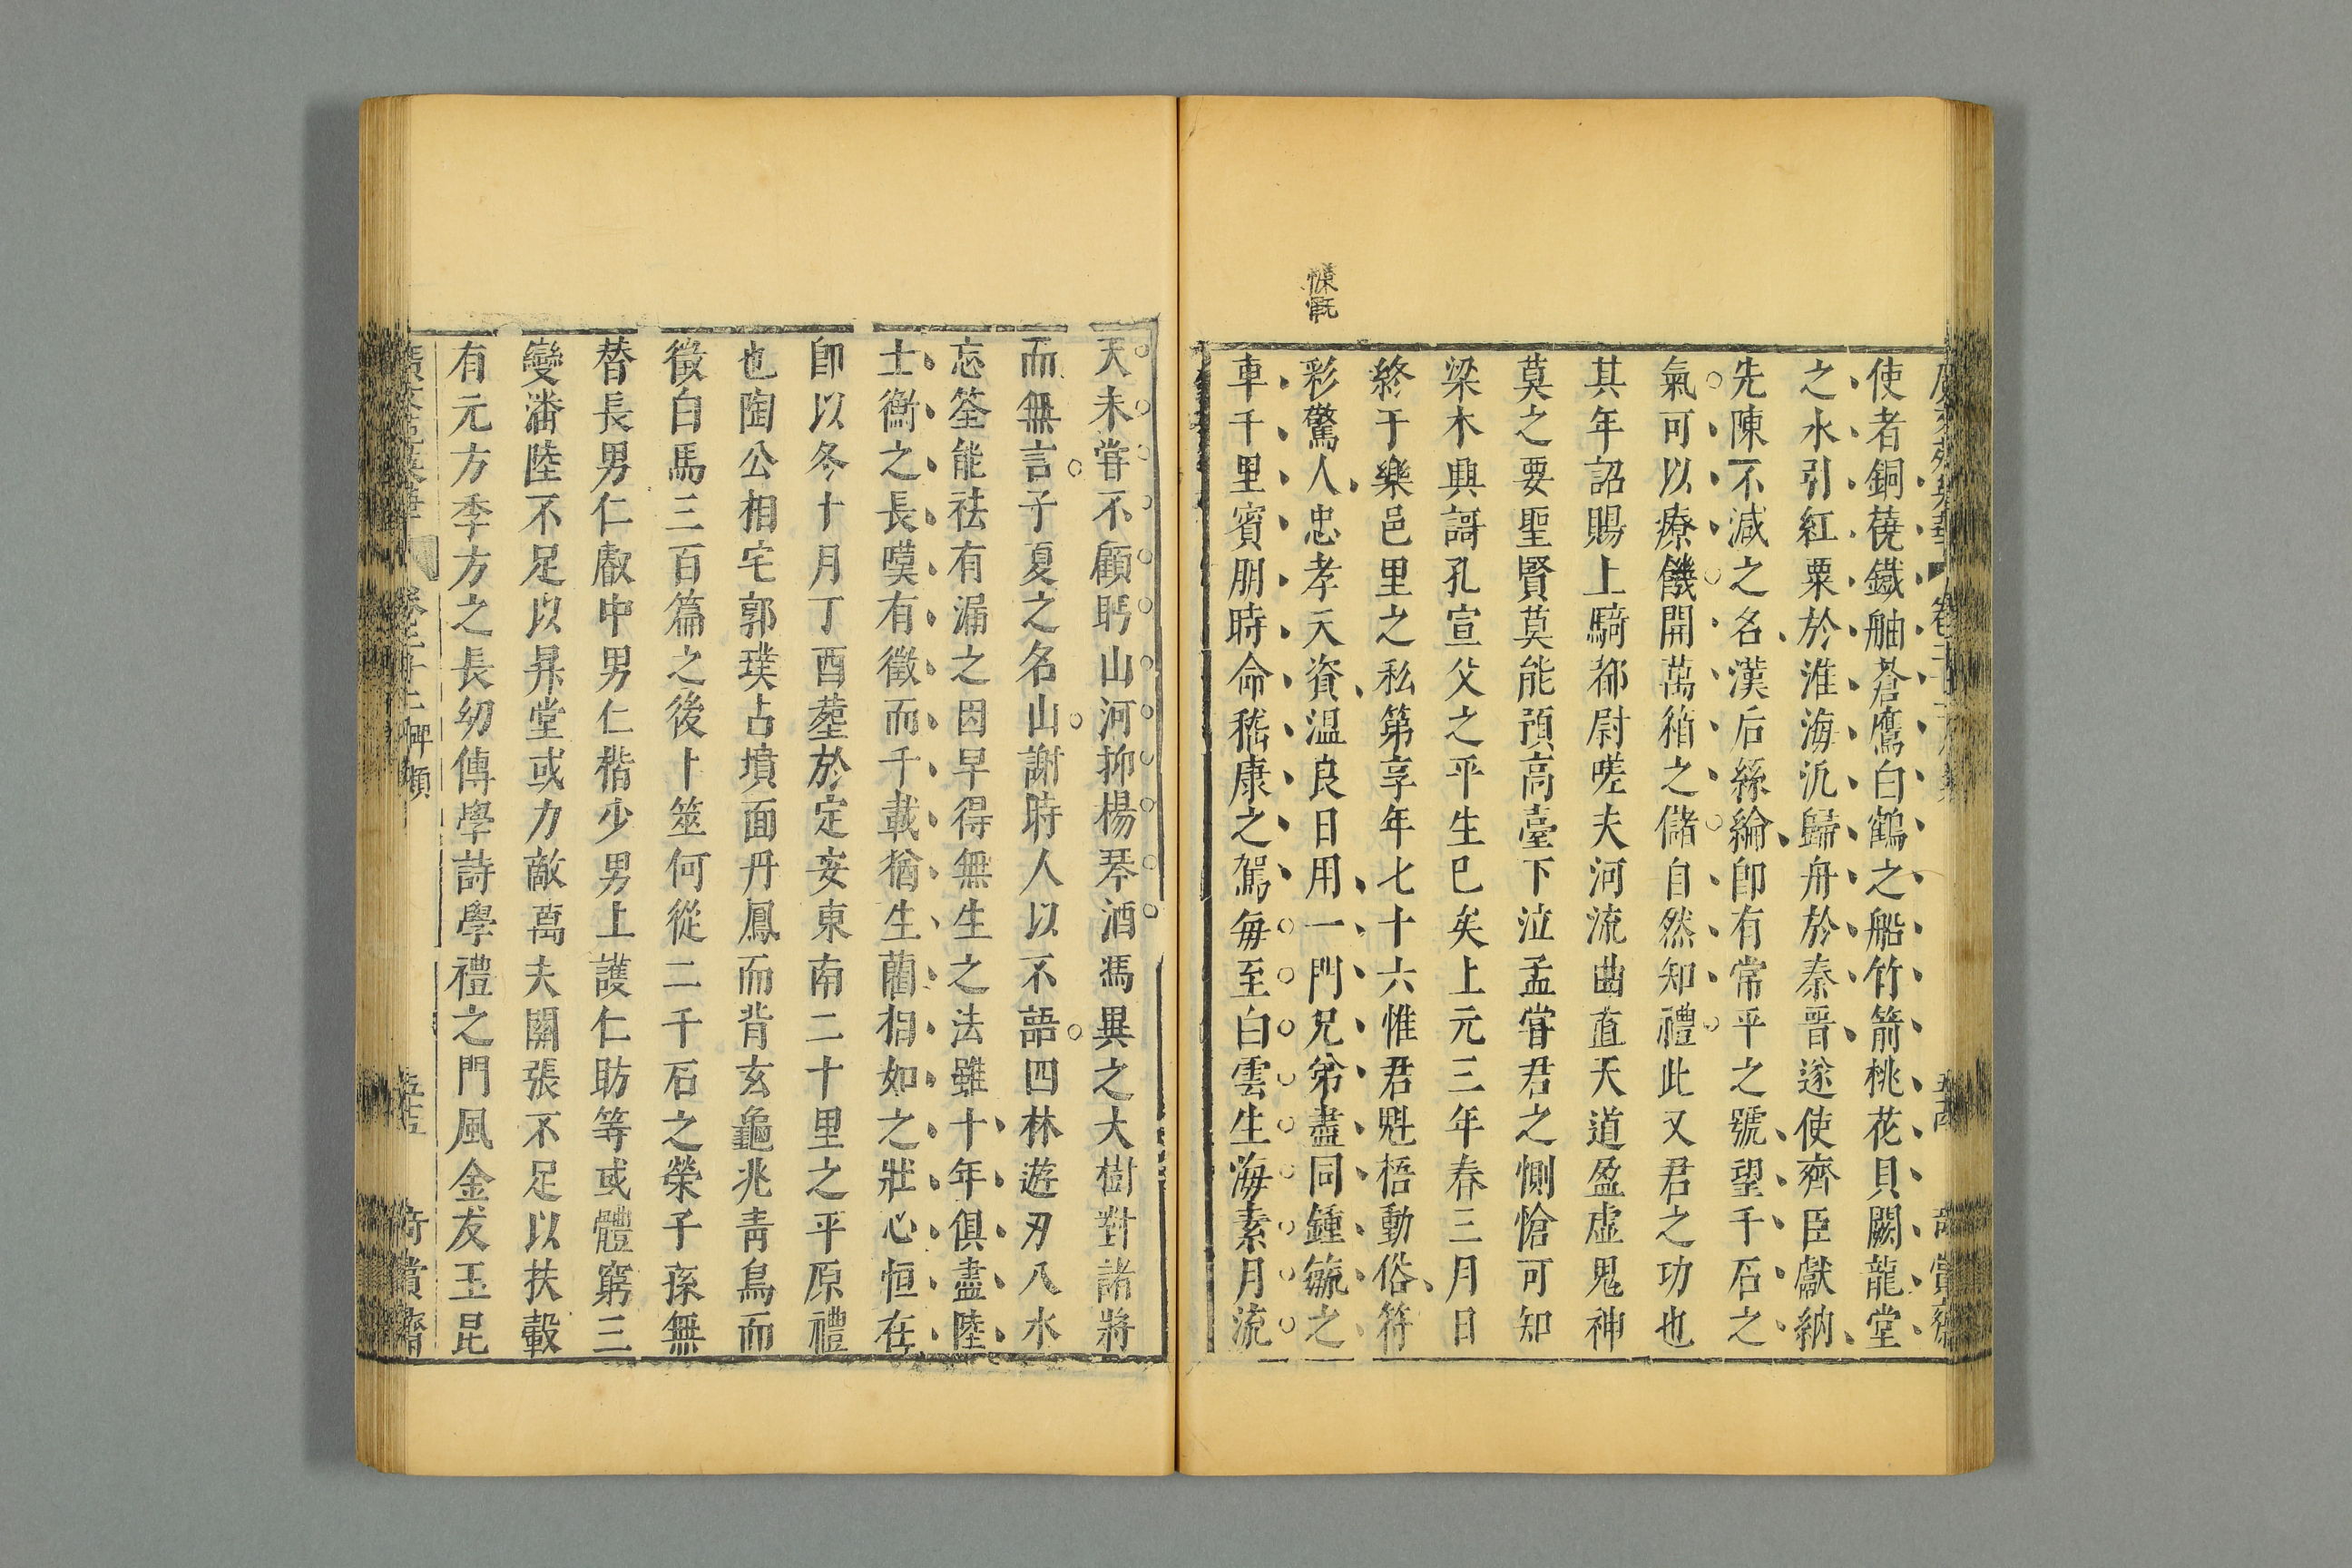 使者銅蕘鐵舳蒼鷹白鶴之船竹箭桃花貝闕龍堂
之水引紅粟於淮海汎歸舟於秦晉遂使齊臣獻納
先陳不減之名漢后絲綸卽有常平之號望千石之
氣可以療饑開萬箱之儲自然知禮此又君之功也
其年詔賜上騎都尉嗟夫河流曲直天道盈虛鬼神
莫之要聖賢莫能預高臺下泣孟嘗君之惻愴可知
梁木興謌孔宣父之平生巳矣上元三年春三月日
終于樂邑里之私第享年七十六惟君魁梧動俗符
慷慨
彩驚人忠孝天資温良日用一門兄弟盡同鍾毓之
車千里賓朋時命嵇康之駕每至白雲生海素月流
天未嘗不顧眄山河抑楊琴酒馮異之大樹對諸將
而無言子夏之名山謝時人以不語四林遊刃八水
忘筌能祛有漏之因早得無生之法雖十年俱盡陸
士衡之長嘆有徵而千載猶生藺相如之壯心恒在
卽以冬十月丁酉塟於定安東南二十里之平原禮
也陶公相宅郭璞占墳面丹鳳而背玄龜兆靑鳥而
徵白馬三百篇之後卜筮何從二千石之榮子孫無
替長男仁叡中男仁楷少男上護仁昉等或體窮三
變潘陸不足以昇堂或力敵萬夫關張不足以扶轂
有元方季方之長幼傳學詩學禮之門風金友玉昆
碑類